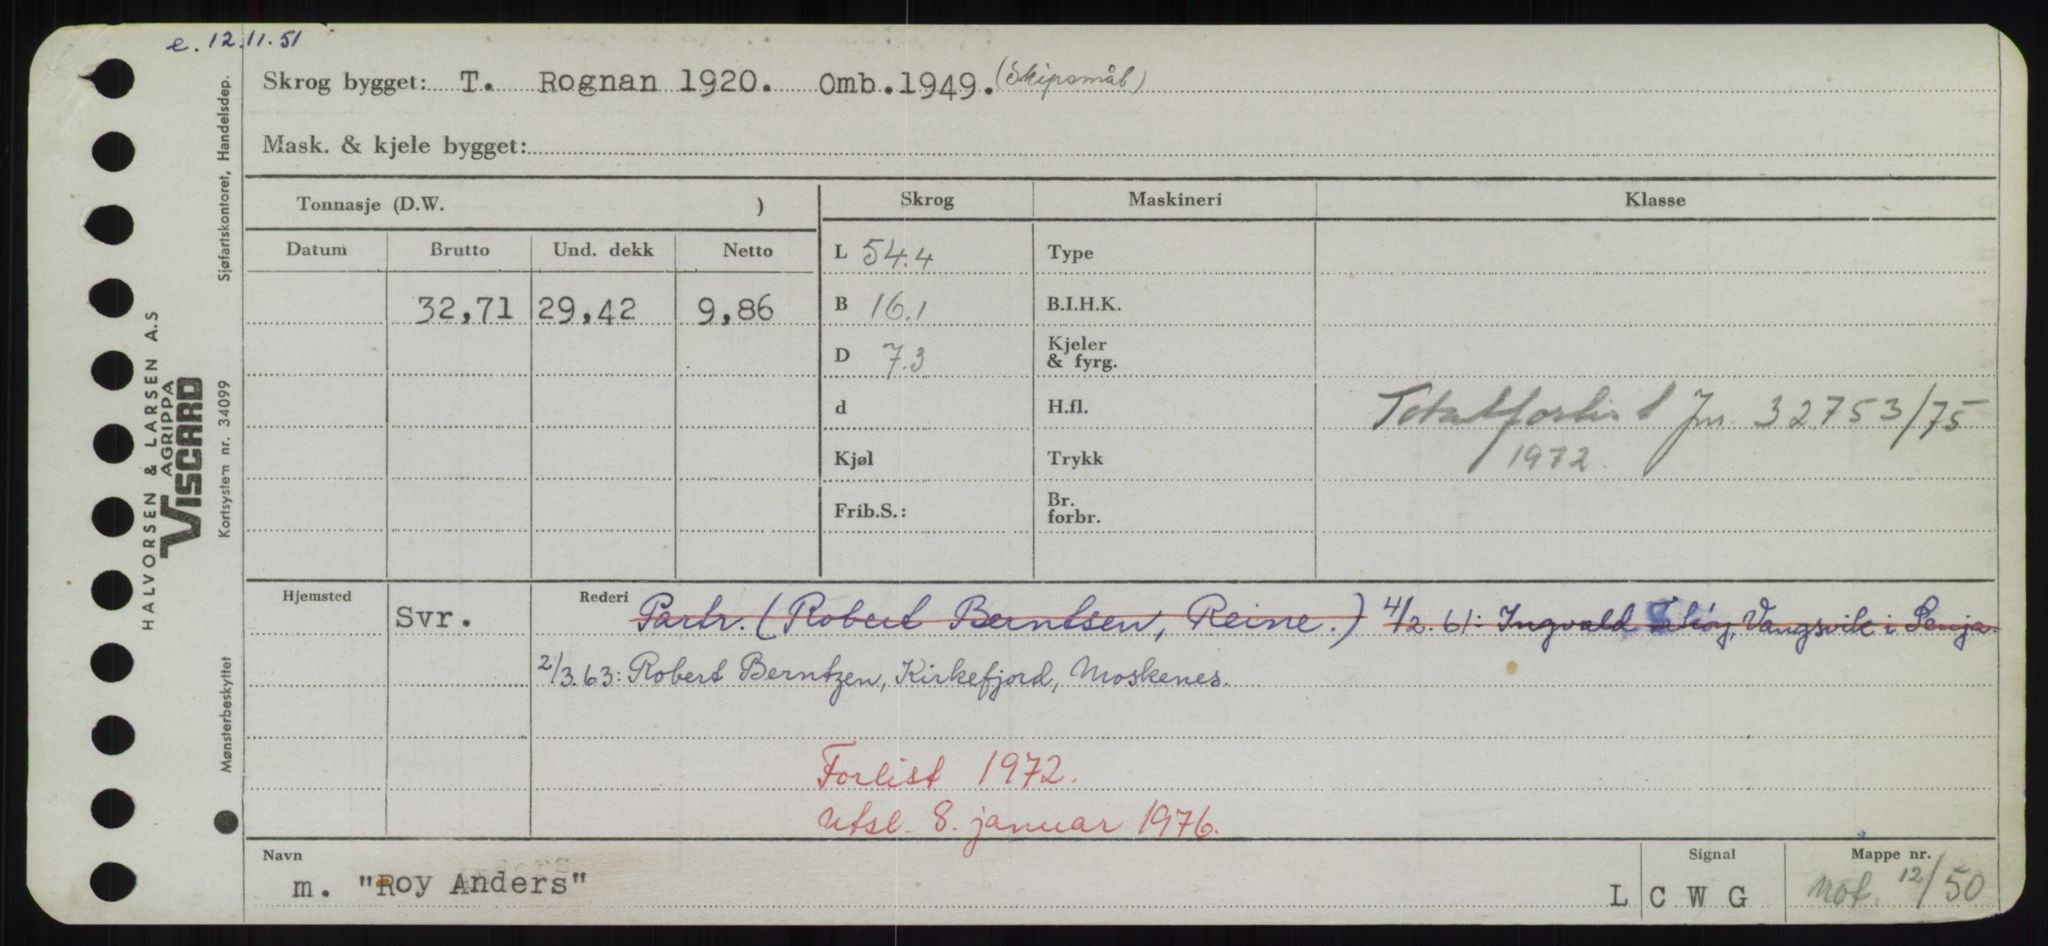 e. 12.11.51
Skrog bygget: T. Rognan 1920. Omb.1949. (Skipsmål)
Mask. & kjele bygget:
Tonnasje (D.W. ) Skrog Maskineri Klasse
Datum Brutto Und. dekk Netto L 54.4 Type
32,71 29,42 9,86 B 16.1 B.I.H.K.
D 7.3 Kjeler & fyrg.
d H.fl. Totalforlist Jnr. 32753/75
Kjøl Trykk 1972.
Frib.S.: Br. forbr.
Hjemsted Svr. Rederi Partr. (Robert Berntsen, Reine.) 4/2.61: Ingvald Vangsvik i Senja.
2/3.63: Robert Berntzen, Kirkefjord, Moskenes.
Forlist 1972.
Utsl. 8. januar 1976.
Navn Signal Mappe nr.
m. "Roy Anders" L C W G Not. 12/50
HALVORSEN & LARSEN A.S
AGRIPPA
VISCARD
Mønsterbeskyttet Kortsystem nr. 34099 Sjøfartskontoret, Handelsdep.